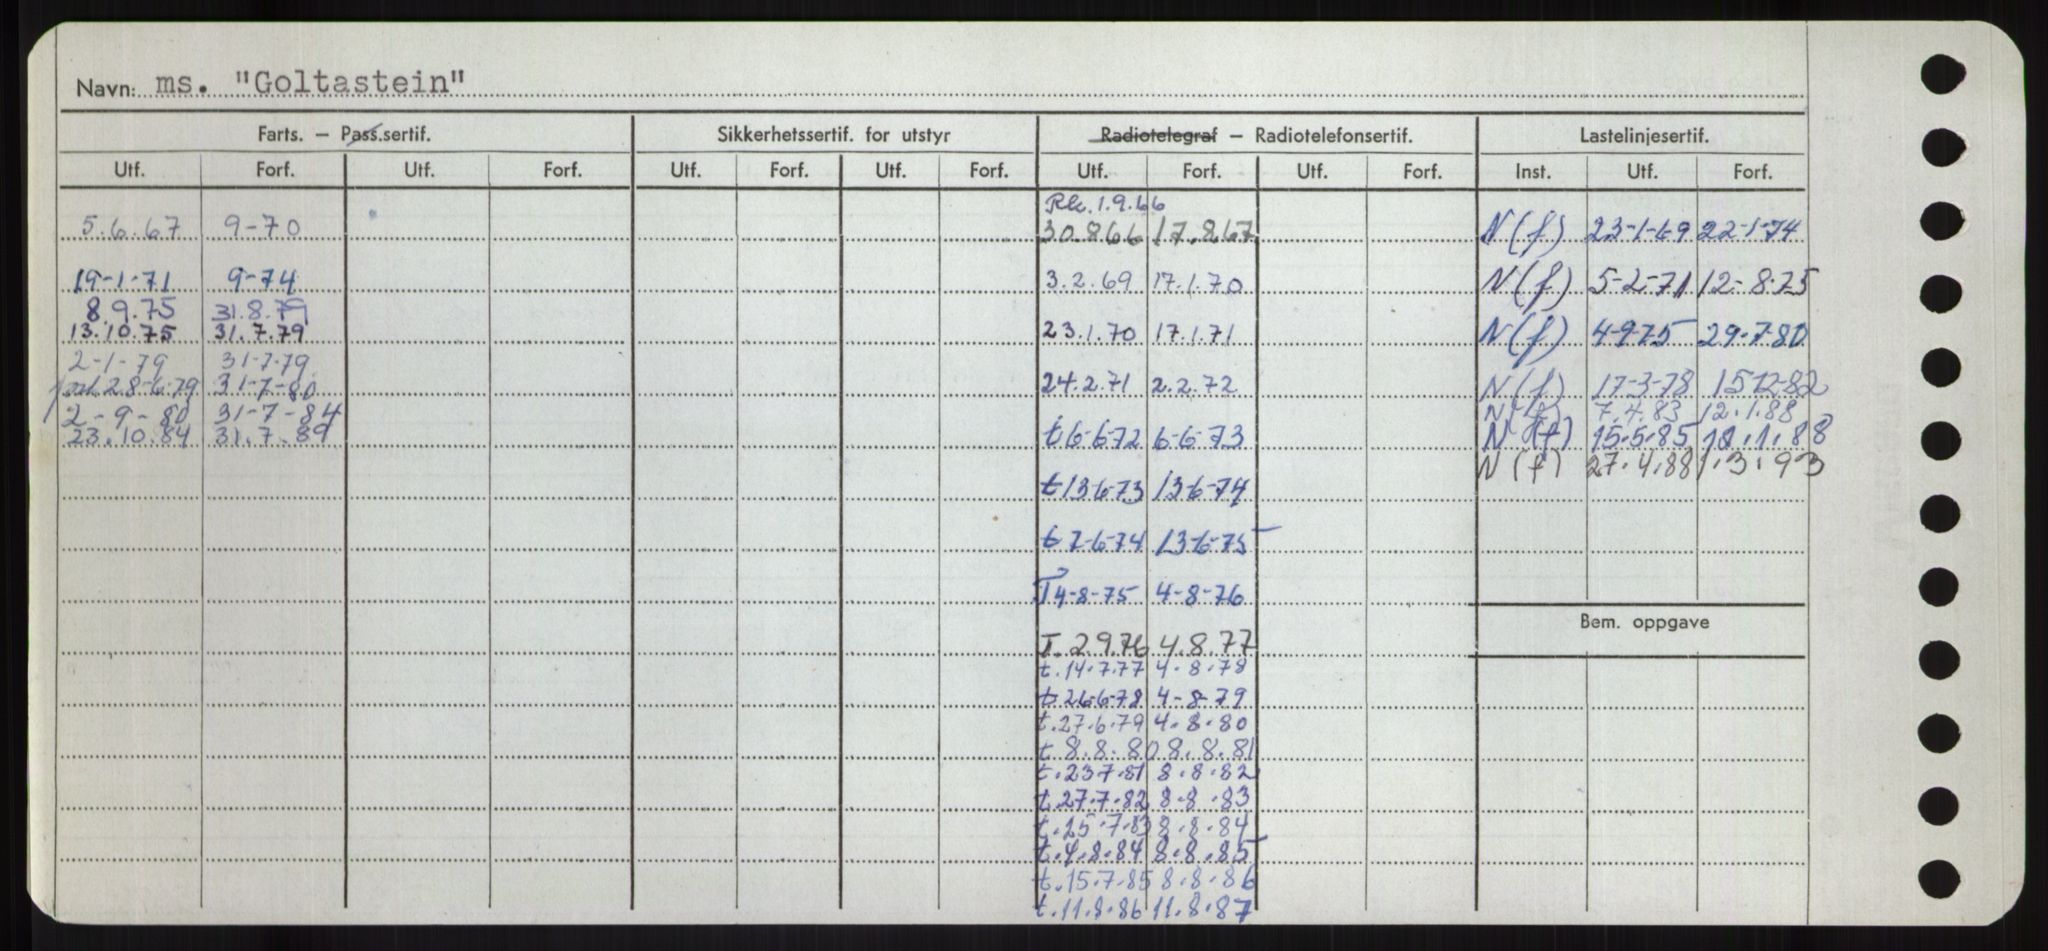 Navn: ms. "Goltastein"
Farts. — Pass.sertif. Sikkerhetssertif. for utstyr Radiotelegraf — Radiotelefonsertif. Lastelinjesertif.
Utf. Forf. Utf. Forf. Utf. Forf. Utf. Forf. Utf. Forf. Utf. Forf. Inst. Utf. Forf.
1.9.66
5.6.67 9-70 30.8.66 17.8.67 N(f) 23-1-69 22-1-74
19-1-71 9-74 3.2.69 17.1.70 N(f) 5-2-71 12-8-75
8.9.75 31.8.79
13.10.75 31.7.79 23.1.70 17.1.71 N(f) 4-9-75 29-7-80
2-1-79 31-7-79
28-6-79 31-7-80 24.2.71 2.2.72 N(f) 17-3-78 15-12-82
2-9-80 31-7-84 N(f) 7.4.83 12.1.88
23.10.84 31.7.89 t 6-6-72 6-6-73 N(f) 15.5.85 12.1.88
N(f) 27.4.88 1.3.93
t 13-6-73 13-6-74
t 7-6-74 13-6-75
T 4-8-75 4-8-76
Bem. oppgave
T. 2.9.76 4.8.77
t. 14.7.77 4.8.78
t. 26-6-78 4-8-79
t. 27.6.79 4.8.80
t. 8.8.80 8.8.81
t. 23.7.81 8.8.82
t. 27.7.82 8.8.83
t. 25.7.83 8.8.84
t. 4.8.84 8.8.85
t. 15.7.85 8.8.86
t. 11.8.86 11.8.87